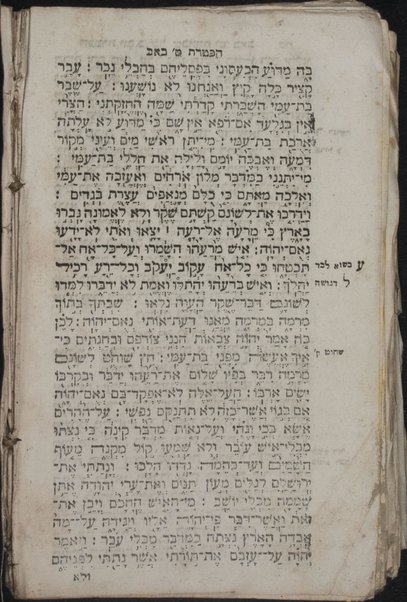 הפטרת ט׳ באב
בה מדוע הכעסוני בפסליהם בהבלי נכר : עבר
קציר כלה קיץ ואנחנו לא נושענו : על־שבר
בת־עמי השברתי קדרתי שמה החזקתני : הצרי
אין בגלעד אם־רפא אין שם כי מדוע לא עלתה
ארכת בת־עמי : מי־יתן ראשי מים ועיני מקור
דמעה ואבכה יומם ולילה את חללי בת־עמי :
מי־יתנני במדבר מלון ארחים ואעזבה את־עמי
ואלכה מאתם כי כלם מנאפים עצרת בגדים :
וידרכו את־לשונם קשתם שקר ולא לאמונה גברו
בארץ כי מרעה אל־רעה ׀ יצאו ואתי לא־ידעו
נאם־יהוה : איש מרעהו השמרו ועל־כל־אח אל־
תבטחו כי כל־אח עקוב יעקב וכל־רע רכיל
יהלך : ואיש ברעהו יהתלו ואמת לא ידברו למדו
לשונם דבר־שקר העוה נלאו : שבתך בתוך
מרמה במרמה מאנו דעת־אותי נאם־יהוה : לכן
כה אמר יהוה צבאות הנני צורפם ובחנתים כי־
איך אעשה מפני בת־עמי : חץ שוחט לשונם
מרמה דבר בפיו שלום את־רעהו ידבר ובקרבו
ישים ארבו : העל־אלה לא־אפקד־בם נאם־יהוה
אם בגוי אשר־כזה לא תתנקם נפשי : על־ההרים
אשא בכי ונהי ועל־נאות מדבר קינה כי נצתו
מבלי־איש עבר ולא שמעו קול מקנה מעוף
השמים ועד־בהמה נדדו הלכו : ונתתי את־
ירושלם לגלים מעון תנים ואת־ערי יהודה אתן
שממה מבלי יושב : מי־האיש החכם ויבן את־
זאת ואשר־דבר פי־יהוה אליו ויגידה על־מה
אבדה הארץ נצתה כמדבר מבלי עבר : ויאמר
יהוה על־עזבם את־תורתי אשר נתתי לפניהם
ולא
ע בשוא לבד
ל דגושה
שחוט ק׳